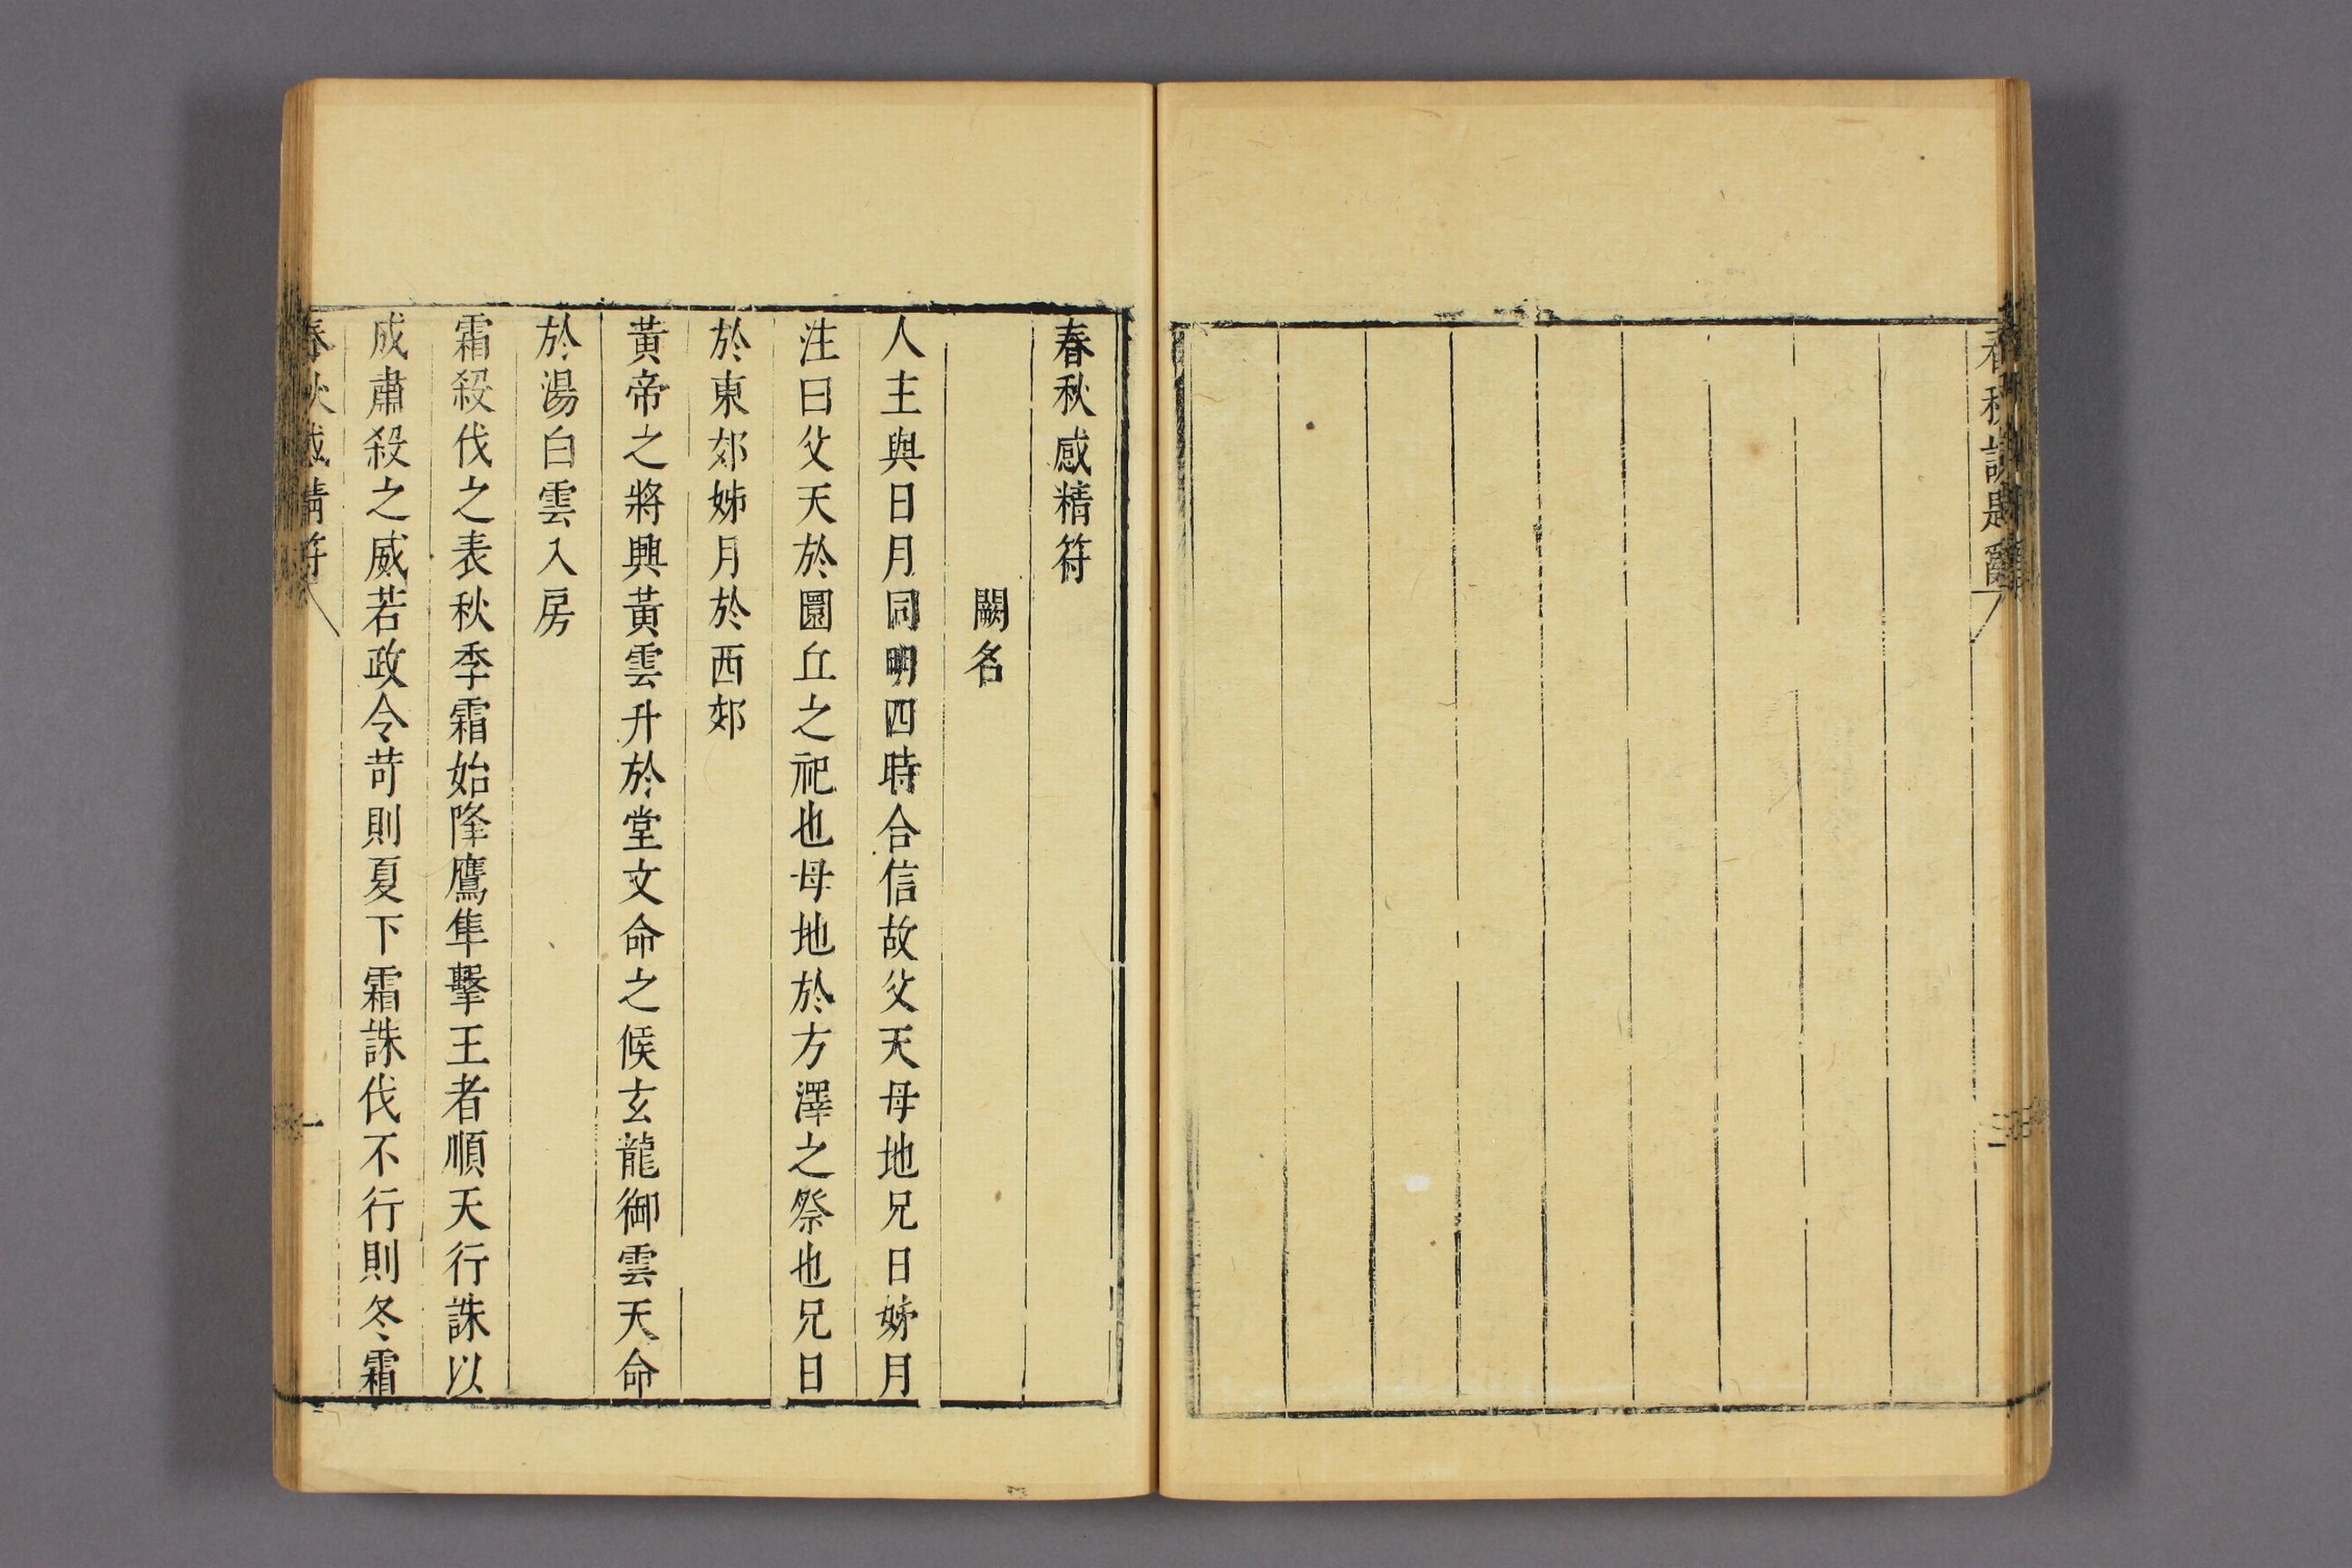 春秋說題辭
一
春秋感精符
闕名
人主與日月同明四時合信故父天母地兄日姊月
注曰父天於圜丘之祀也母地於方澤之祭也兄日
於東郊姊月於西郊
黃帝之將興黃雲升於堂文命之候玄龍御雲天命
於湯白雲入房
霜殺伐之表秋季霜始降鷹隼擊王者順天行誅以
成肅殺之威若政令苛則夏下霜誅伐不行則冬霜
春秋感精符
一